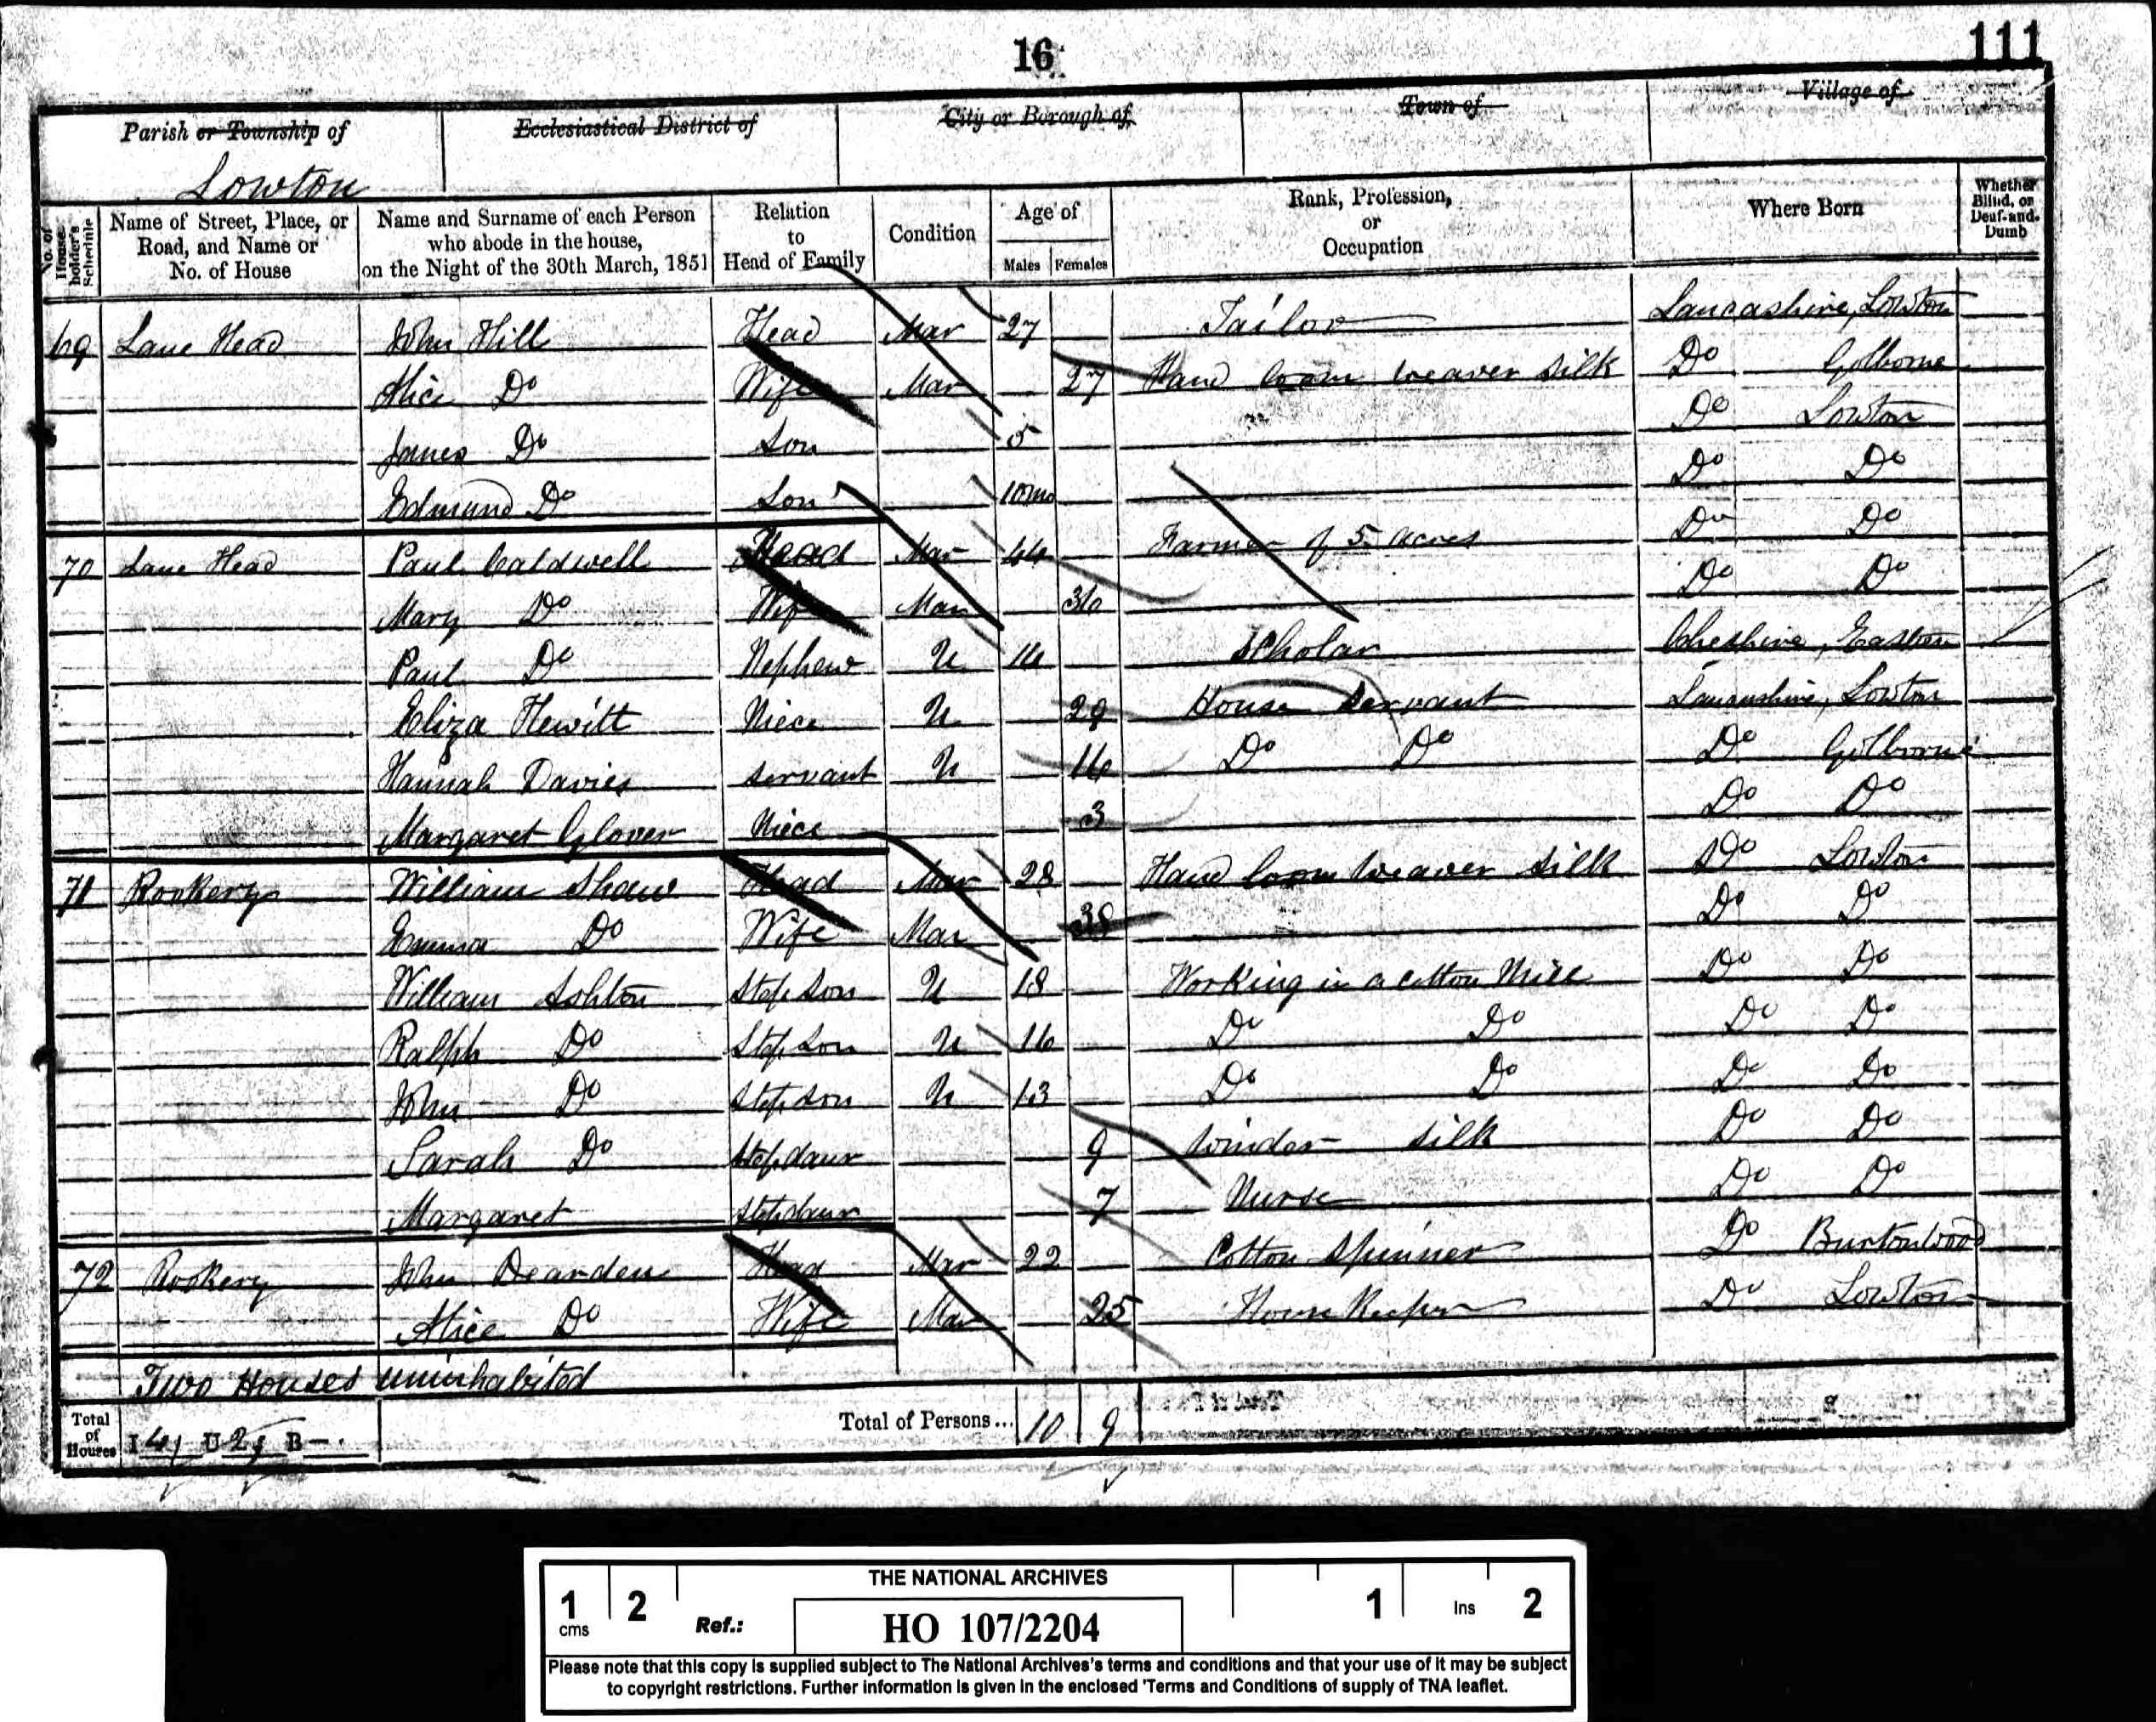 16
111
Parish or Township of
Ecclesiastical District of
City or Borough of
Town of
Village of
Lowton
No. of Householder's Schedule
Name of Street, Place, or Road, and Name or No. of House
Name and Surname of each Person who abode in the house, on the Night of the 30th March, 1851
Relation to Head of Family
Condition
Age of
Males Females
Rank, Profession, or Occupation
Where Born
Whether Blind, or Deaf-and-Dumb
69 Lane Head John Hill Head Mar 27 Tailor Lancashire, Lowton
Alice Do Wife Mar 27 Hand loom weaver silk Do Golborne
James Do Son 5 Do Lowton
Edmund Do Son 10mo Do Do
70 Lane Head Paul Caldwell Head Mar 44 Farmer of 5 acres Do Do
Mary Do Wife Mar 36 Do Do
Paul Do Nephew U 14 Scholar Cheshire,
Eliza Hewitt Niece U 29 House Servant Lancashire, Lowton
Hannah Davies servant U 16 Do Do Do Golborne
Margaret Glover Niece 3 Do Do
71 Rookery William Shaw Head Mar 28 Hand loom weaver silk Do Lowton
Emma Do Wife Mar 38 Do Do
William Ashton Stepson U 18 Working in a cotton Mill Do Do
Ralph Do Stepson U 16 Do Do Do Do
John Do Stepson U 13 Do Do Do Do
Sarah Do Stepdaur 9 Winder silk Do Do
Margaret Stepdaur 7 Nurse Do Do
72 Rookery John Dearden Head Mar 22 Cotton Spinner Do Burtonwood
Alice Do Wife Mar 25 House Keeper Do Lowton
Two Houses uninhabited
Total of Houses I 4 U 2 B —
Total of Persons... 10 9
THE NATIONAL ARCHIVES
1 cms 2 Ref.: HO 107/2204 1 Ins 2
Please note that this copy is supplied subject to The National Archives's terms and conditions and that your use of it may be subject
to copyright restrictions. Further information is given in the enclosed 'Terms and Conditions of supply of TNA leaflet.